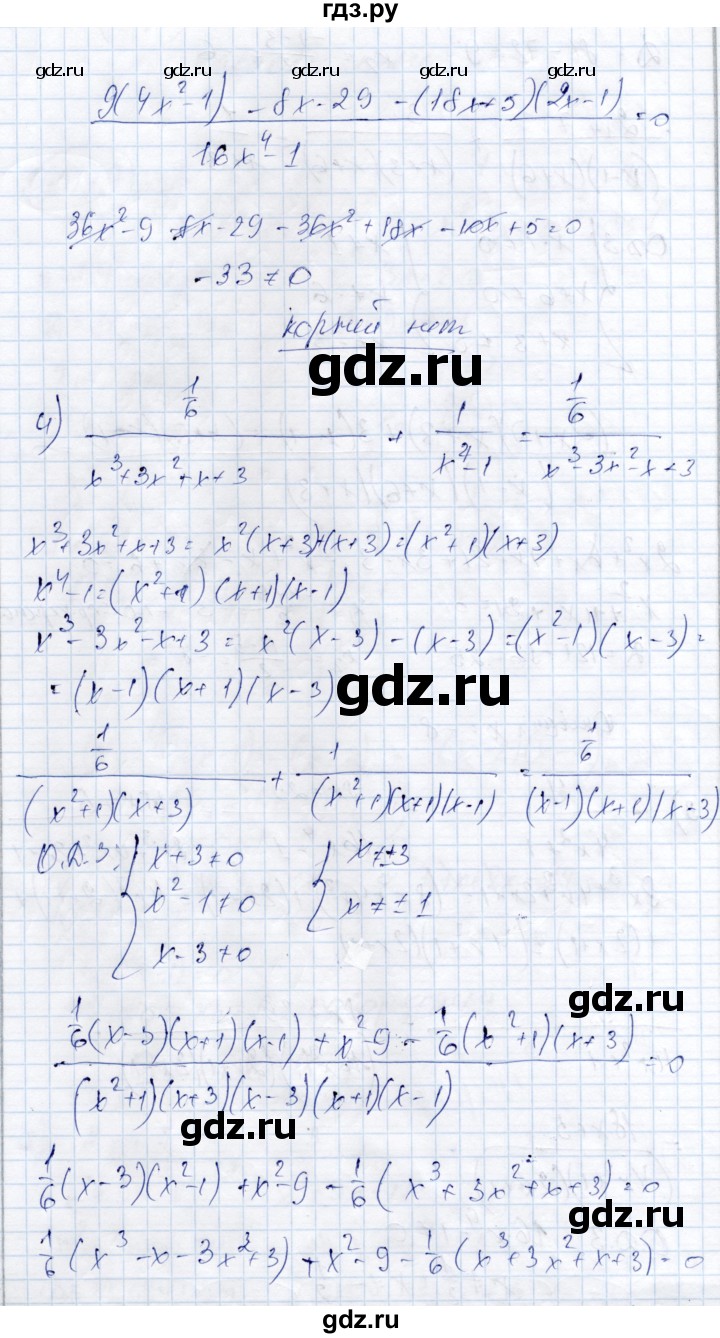 гдз.ру
gdz.ru gdz.ru gdz.ru gdz.ru gdz.ru
9(4x²-1) - 8x - 29 - (18x+5)(2x-1)
———————————————— = 0
16x⁴-1
36x² - 9 - 8x - 29 - 36x² + 18x - 10x + 5 = 0
-33 ≠ 0
корней нет
gdz.ru
4) 1/6 / (x³+3x²+x+3) + 1/(x⁴-1) = 1/6 / (x³-3x²-x+3)
x³+3x²+x+3 = x²(x+3)+(x+3) = (x²+1)(x+3)
x⁴-1 = (x²+1)(x+1)(x-1)
x³-3x²-x+3 = x²(x-3)-(x-3) = (x²-1)(x-3) =
= (x-1)(x+1)(x-3)
gdz.ru
1/6 / ((x²+1)(x+3)) + 1/((x²+1)(x+1)(x-1)) = 1/6 / ((x-1)(x+1)(x-3))
О.Д.З: { x+3≠0 { x≠±3
x²-1≠0 x≠±1
x-3≠0
gdz.ru
1/6(x-3)(x+1)(x-1) + x²-9 - 1/6(x²+1)(x+3)
———————————————— = 0
(x²+1)(x+3)(x-3)(x+1)(x-1)
gdz.ru
1/6(x-3)(x²-1) + x²-9 - 1/6(x³+3x²+x+3) = 0
gdz.ru
1/6(x³-x-3x²+3) + x²-9 - 1/6(x³+3x²+x+3) = 0
gdz.ru